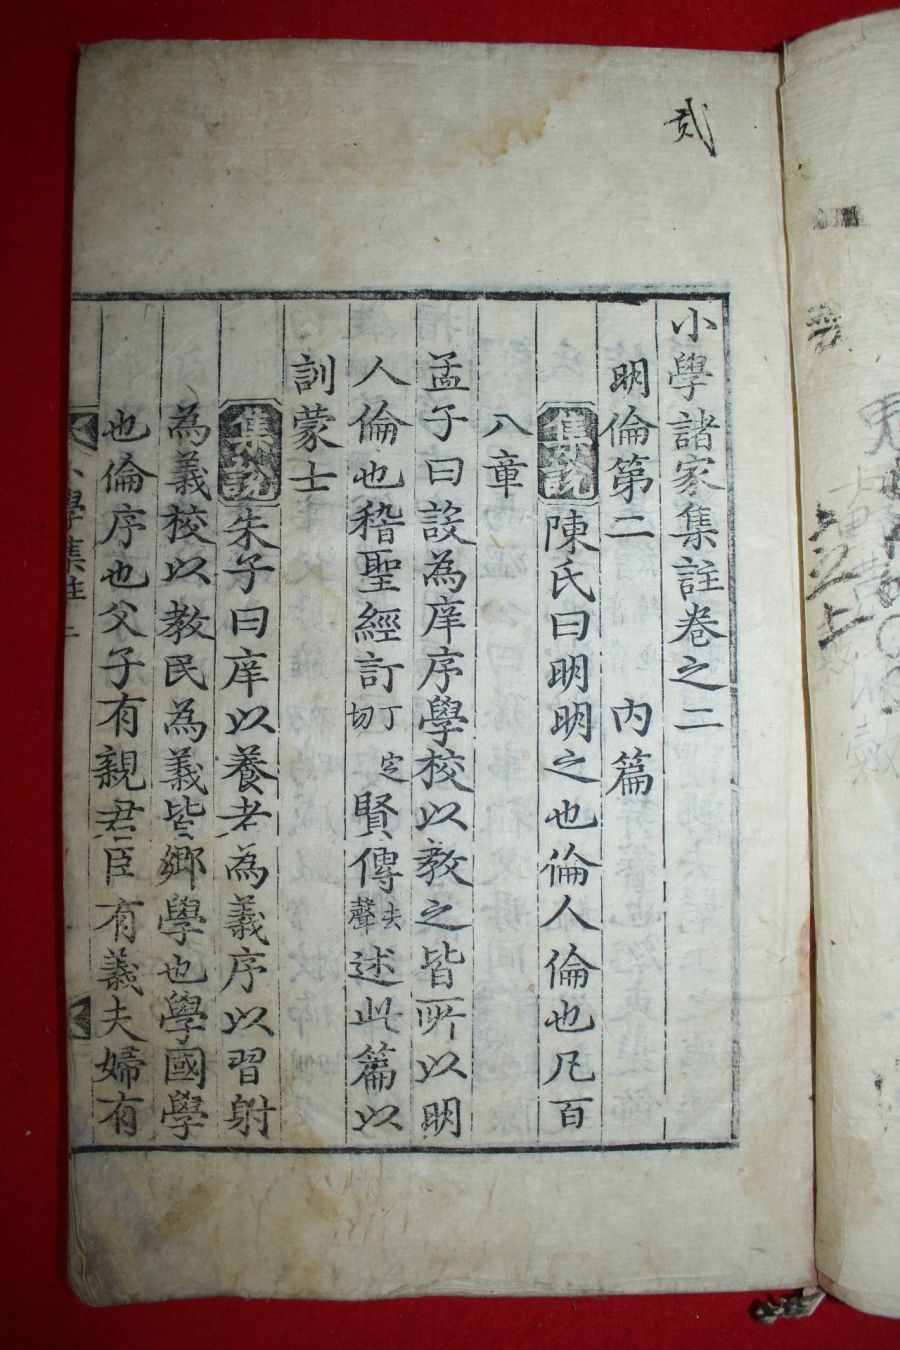 貳
小學諸家集註卷之二
明倫第二 內篇
集說陳氏曰明明之也倫人倫也凡百
八章
孟子曰設為庠序學校以教之皆所以明
人倫也稽聖經訂丁定切賢傳去聲述此篇以
訓蒙士
集說朱子曰庠以養老為義序以習射
為義校以教民為義皆鄉學也學國學
也倫序也父子有親君臣有義夫婦有
小學集註二
之上